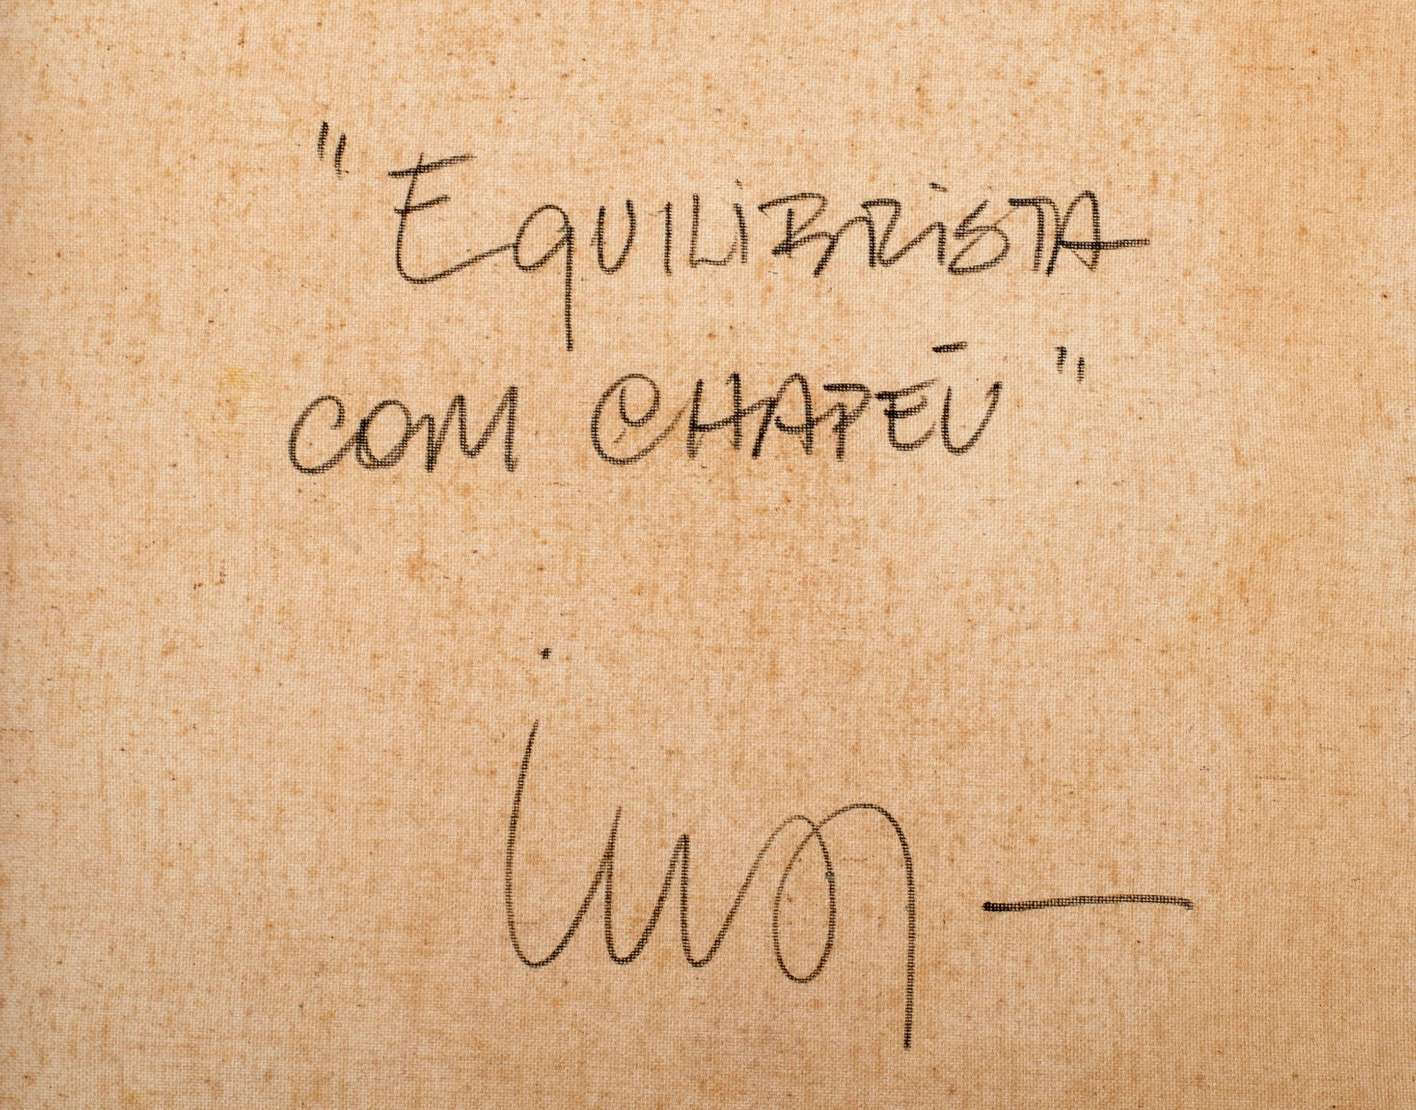 "EQUILIBRISTA
COM CHAPÉU"